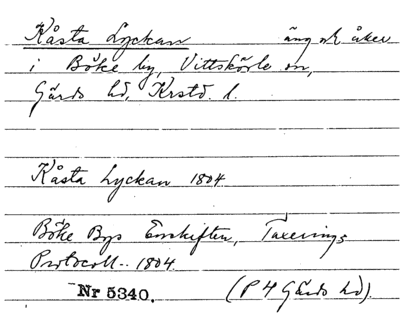 Kåsta Lyckan äng ok åker
i Böke by, Vittskövle sn,
Gärds hd, Krstd. l.
Kåsta Lyckan 1804
Böke Bys Enskiften, Taxerings
Protocoll 1804.
Nr 5340. (P4 Gärds hd).